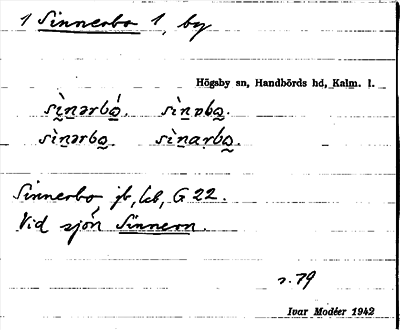 1 Sinnerbo 1, by
Högsby sn, Handbörds hd, Kalm. l.
sìnərbó. sìnəbo.
sìnərbo. sìnarbo.
Sinnerbo jb, lcb, G 22.
Vid sjön Sinnern.
s. 79
Ivar Modéer 1942